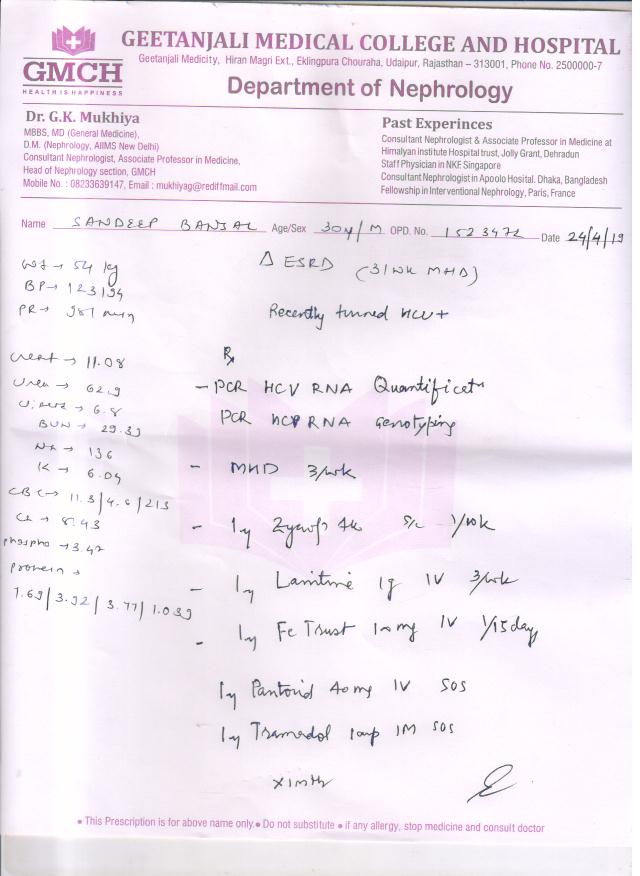 GEETANJALI MEDICAL COLLEGE AND HOSPITAL
Geetanjali Medicity, Hiran Magri Ext., Eklingpura Chouraha, Udaipur, Rajasthan – 313001, Phone No. 2500000-7
GMCH
HEALTH IS HAPPINESS
Department of Nephrology
Dr. G.K. Mukhiya
MBBS, MD (General Medicine),
D.M. (Nephrology, AIIMS New Delhi)
Consultant Nephrologist, Associate Professor in Medicine,
Head of Nephrology section, GMCH
Mobile No. : 08233639147, Email : mukhiyag@rediffmail.com
Past Experinces
Consultant Nephrologist & Associate Professor in Medicine at
Himalyan Institute Hospital trust, Jolly Grant, Dehradun
Staff Physician in NKF Singapore
Consultant Nephrologist in Apoolo Hospital. Dhaka, Bangladesh
Fellowship in Interventional Nephrology, Paris, France
Name SANDEEP BANSAL Age/Sex 30y/M OPD. No. 1523472 Date 24/4/19
Wt → 54 kg
BP → 123/94
PR → 98/min
Δ ESRD (3/wk MHD)
Recently turned HCV+
Creat → 11.08
Urea → 62.9
→ 6.8
BUN → 29.39
Na → 136
K → 6.04
CBC → 11.3/4.6/213
Ca → 8.43
phospho → 3.47
Protein →
7.69/3.92/3.77/1.039
Rx
- PCR HCV RNA
PCR HCV RNA Genotyping
- MHD 3/wk
- Inj 4k s/c 1/wk
- Inj 1g IV 3/wk
- Inj Fe Trust IV 1/15day
Inj 40mg IV SOS
Inj Tramadol 1amp IM SOS
x 1mth
• This Prescription is for above name only. • Do not substitute • if any allergy, stop medicine and consult doctor